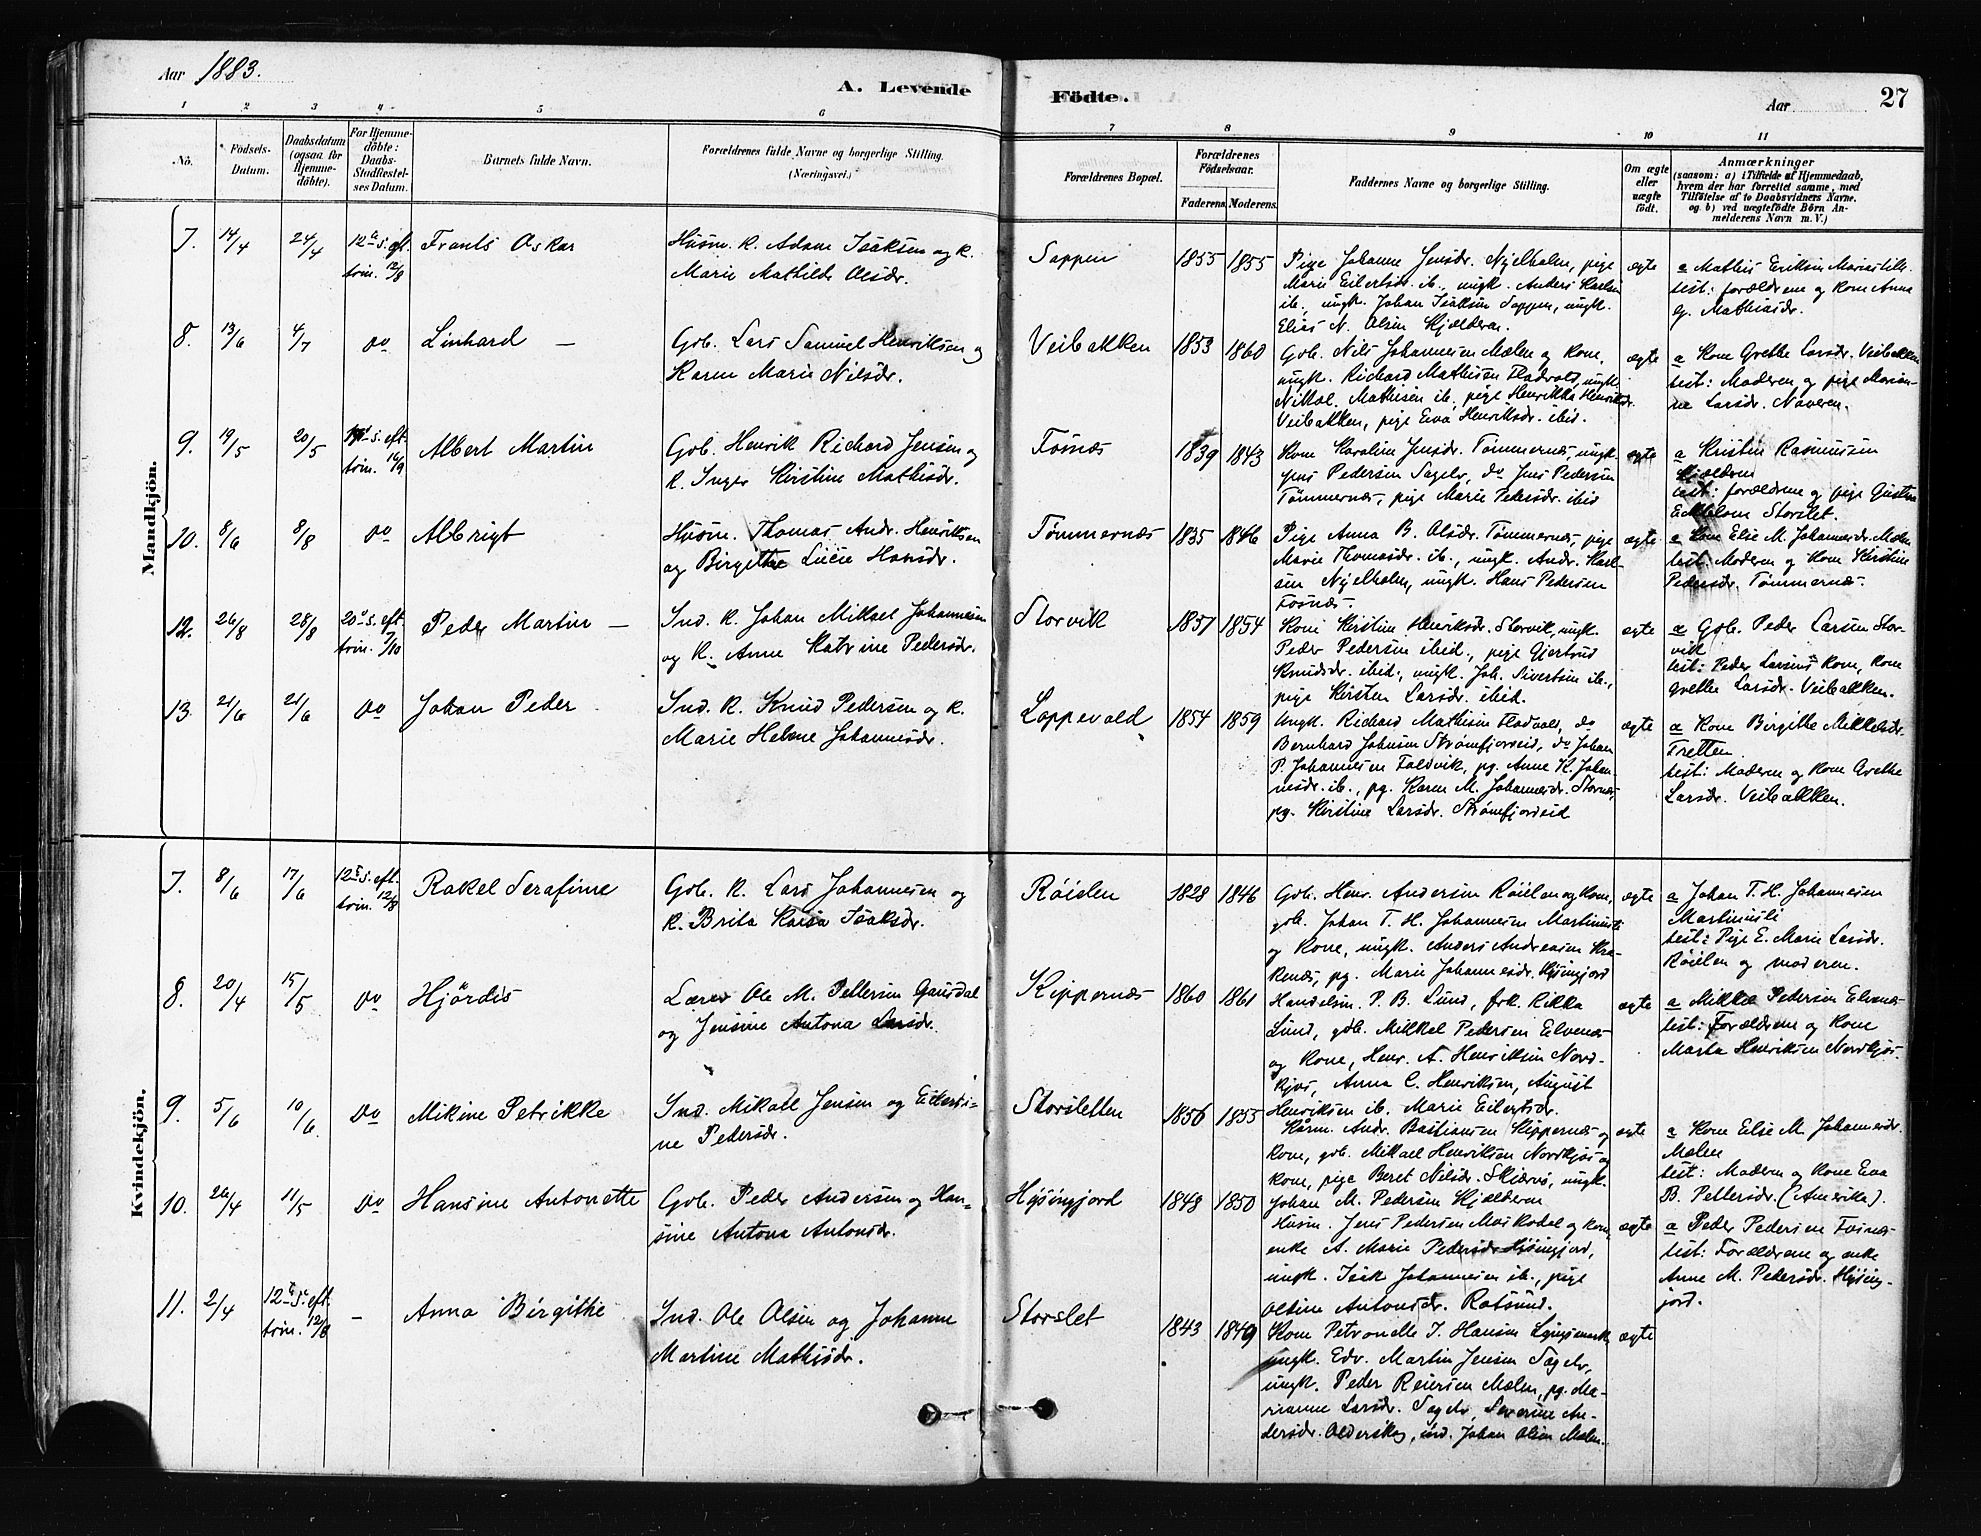 Aar 1883.
A. Levende
Födte.
Aar
27
1 2 3 4 5 6 7 8 9 10 11
No.
Födsels-Datum.
Daabsdatum (ogsaa for Hjemme-döbte).
For Hjemme-döbte: Daabs-Stadfæstel-ses Datum.
Barnets fulde Navn.
Forældrenes fulde Navne og borgerlige Stilling. (Næringsvei.)
Forældrenes Bopæl.
Forældrenes Födselsaar.
Faderens. Moderens.
Faddernes Navne og borgerlige Stilling.
Om ægte eller uægte födt.
Anmærkninger
(saasom: a) i Tilfælde af Hjemmedaab,
hvem der har forrettet samme, med
Tilföielse af to Daabsvidners Navne.
og b) ved uægtefödte Börn An-
melderens Navn m. V.)
Mandkjön.
7. 14/4 24/4 12te s. eft. trin. 12/8 Frants Oskar
Husm. K. Adam Isaksen og K.
Marie Mathilde Olsdr.
Sappen 1855 1855
Pige Johanne Jensdr. Njelholm, pige
Marie Eilertsdr. ib., ungk. Anders Karlsen
ib., ungk. Johan Isaksen Sappen, ungk.
Elias N. Olsen Kjelderen.
ægte
a Mathis Eriksen
test: forældrene og kone Anna
G. Mathisdr.
8. 13/6 4/7 do Linhard —
Gbb. Lars Samuel Henriksen og
Karen Marie Nilsdr.
Veibakken 1853 1860
Gbb. Nils Johannesen Mælen og kone,
ungk. Richard Mathisen Fladvold, ungk.
Nikol. Mathisen ib., pige Henrikka Henriksdr.
Veibakken, pige Eva Henriksdr. ibid.
ægte
a Kone Grethe Larsdr. Veibakken
test: Moderen og pige Marian-
ne Larsdr. Naveren.
9. 19/5 20/5 s. eft. trin. 16/9 Albert Martin
Gbb. Henrik Richard Jensen og
K. Inger Kirstine Mathisdr.
Fosnæs 1839 1843
Kone Karolin Jensdr. Tømmernæs, ungk.
Jens Pedersen Sagelv, do Jens Pedersen
Tømmernæs, pige Marie Pedersdr. ibid
ægte
a Kristin Rasmussen
Kjelderen
test: forældrene og pige Gustava
Storslet.
10. 8/6 8/8 do Albrigt
Husm. Thomas Andr. Henriksen
og Birgitte Lucie Hansdr.
Tømmernæs 1835 1846
Pige Anna B. Olsdr. Tømmernæs, pige
Marie Thomasdr. ib., ungk. Andr. Karl-
sen Njelholm, ungk. Hans Pedersen
Fosnæs.
ægte
a Kone Else M. Johannesdr. Mælen
test: Moderen og kone Kirstine
Pedersdr. Tømmernæs.
12. 26/8 28/8 20de s. eft. trin. 7/10 Peder Martin —
Ind. K. Johan Mikael Johannesen
og K. Anne Katrine Pedersdr.
Storvik 1851 1854
Kone Kirstin Henriksdr. Storvik, ungk.
Peder Pedersen ibid., pige Gjertrud
Knudsdr. ibid., ungk. Joh. Sivertsen ib.,
pige Kirsten Larsdr. ibid.
ægte
a Gbb. Peder Larsen Stor-
vik
test: Peder Larsens kone, kone
Grethe Larsdr. Veibakken.
13. 21/6 21/6 do Johan Peder
Ind. K. Knud Pedersen og K.
Marie Helene Johannesdr.
Loppevold 1854 1859
Ungk. Richard Mathisen Fladvold, do
Bernhard Johnsen Strømfjordeid, do Johan
P. Johannesen Foldvik, pg. Anne K. Johan-
nesdr. ib., pg. Karen M. Johannesdr. Stornæs,
pg. Kirstine Larsdr. Strømfjordeid
ægte
a Kone Birgithe Mikkelsdr.
Fretten
test: Moderen og kone Grethe
Larsdr. Veibakken.
Kvindekjön.
7. 8/6 17/6 12te s. eft. trin. 12/8 Rakel Serafine
Gbb. K. Lars Johannesen og
K. Brita Kaisa Isaksdr.
Røielen 1828 1846
Gbb. Henr. Andersen Røielen og kone,
gbb. Johan T. H. Johannesen Martinusli
og kone, ungk. Anders Andreasen
pg. Marie Johannesdr. Hysingjord
ægte
a Johan T. H. Johannesen
Martinusli
test: Pige E. Marie Larsdr.
Røielen og moderen.
8. 20/4 15/5 do Hjördis
Lærer Ole M. Pettersen Gausdal
og Jensine Antona Larsdr.
Kippernæs 1860 1861
Handelsm. P. B. Lund, frk. Rikka
Lund, gbb. Mikkel Pedersen Elvenæs
og kone, Henr. A. Henriksen Nord-
kjos, Anna C. Henriksen, August
Henriksen ib. Marie Eilertsdr.
ægte
a Mikkel Pedersen Elvenæs
test: Forældrene og kone
Marta Henriksen Nordkjos.
9. 5/6 10/6. do Mikine Petrikke
Ind. Mikael Jensen og
ne Pedersdr.
Storsletten 1856 1855
Andr. Bastiansen Kippernæs og
kone, gbb. Mikael Henriksen Nordkjos og
kone, pige Beret Nilsdr. Skjærvø, ungk.
Johan M. Pedersen Kjelderen
ægte
a Kone Else M. Johannesdr.
Mælen
test: Moderen og kone Eva
B. Pettersdr. (Amerika).
10. 26/4 11/5 do Hansine Antonette
Gbb. Peder Andersen og Han-
sine Antona Antonsdr.
Hysingjord 1848 1850
Husm. Jens Pedersen Moskodal og kone,
enke A. Marie Pedersdr. Hysingjord,
ungk. Isak Johannesen ib., pige
Oline Antonsdr. Rotsund.
ægte
a Peder Pedersen Fosnæs
test: Forældrene og enke
Anne M. Pedersdr. Hysing-
jord.
11. 2/4 12te s. eft. trin. 12/8 — Anna Birgithe
Ind. Ole Olsen og Johanne
Martine Mathisdr.
Storslet 1843 1849
Kone Petronelle J. Hansen Lyngsmark,
ungk. Edv. Martin Jensen Sagelv,
ungk. Peder Reiersen Mælen, pg. Ma-
rianne Larsdr. Sagelv, Severine An-
dersdr. Olderskog, ind. Johan Olsen Mælen.
ægte